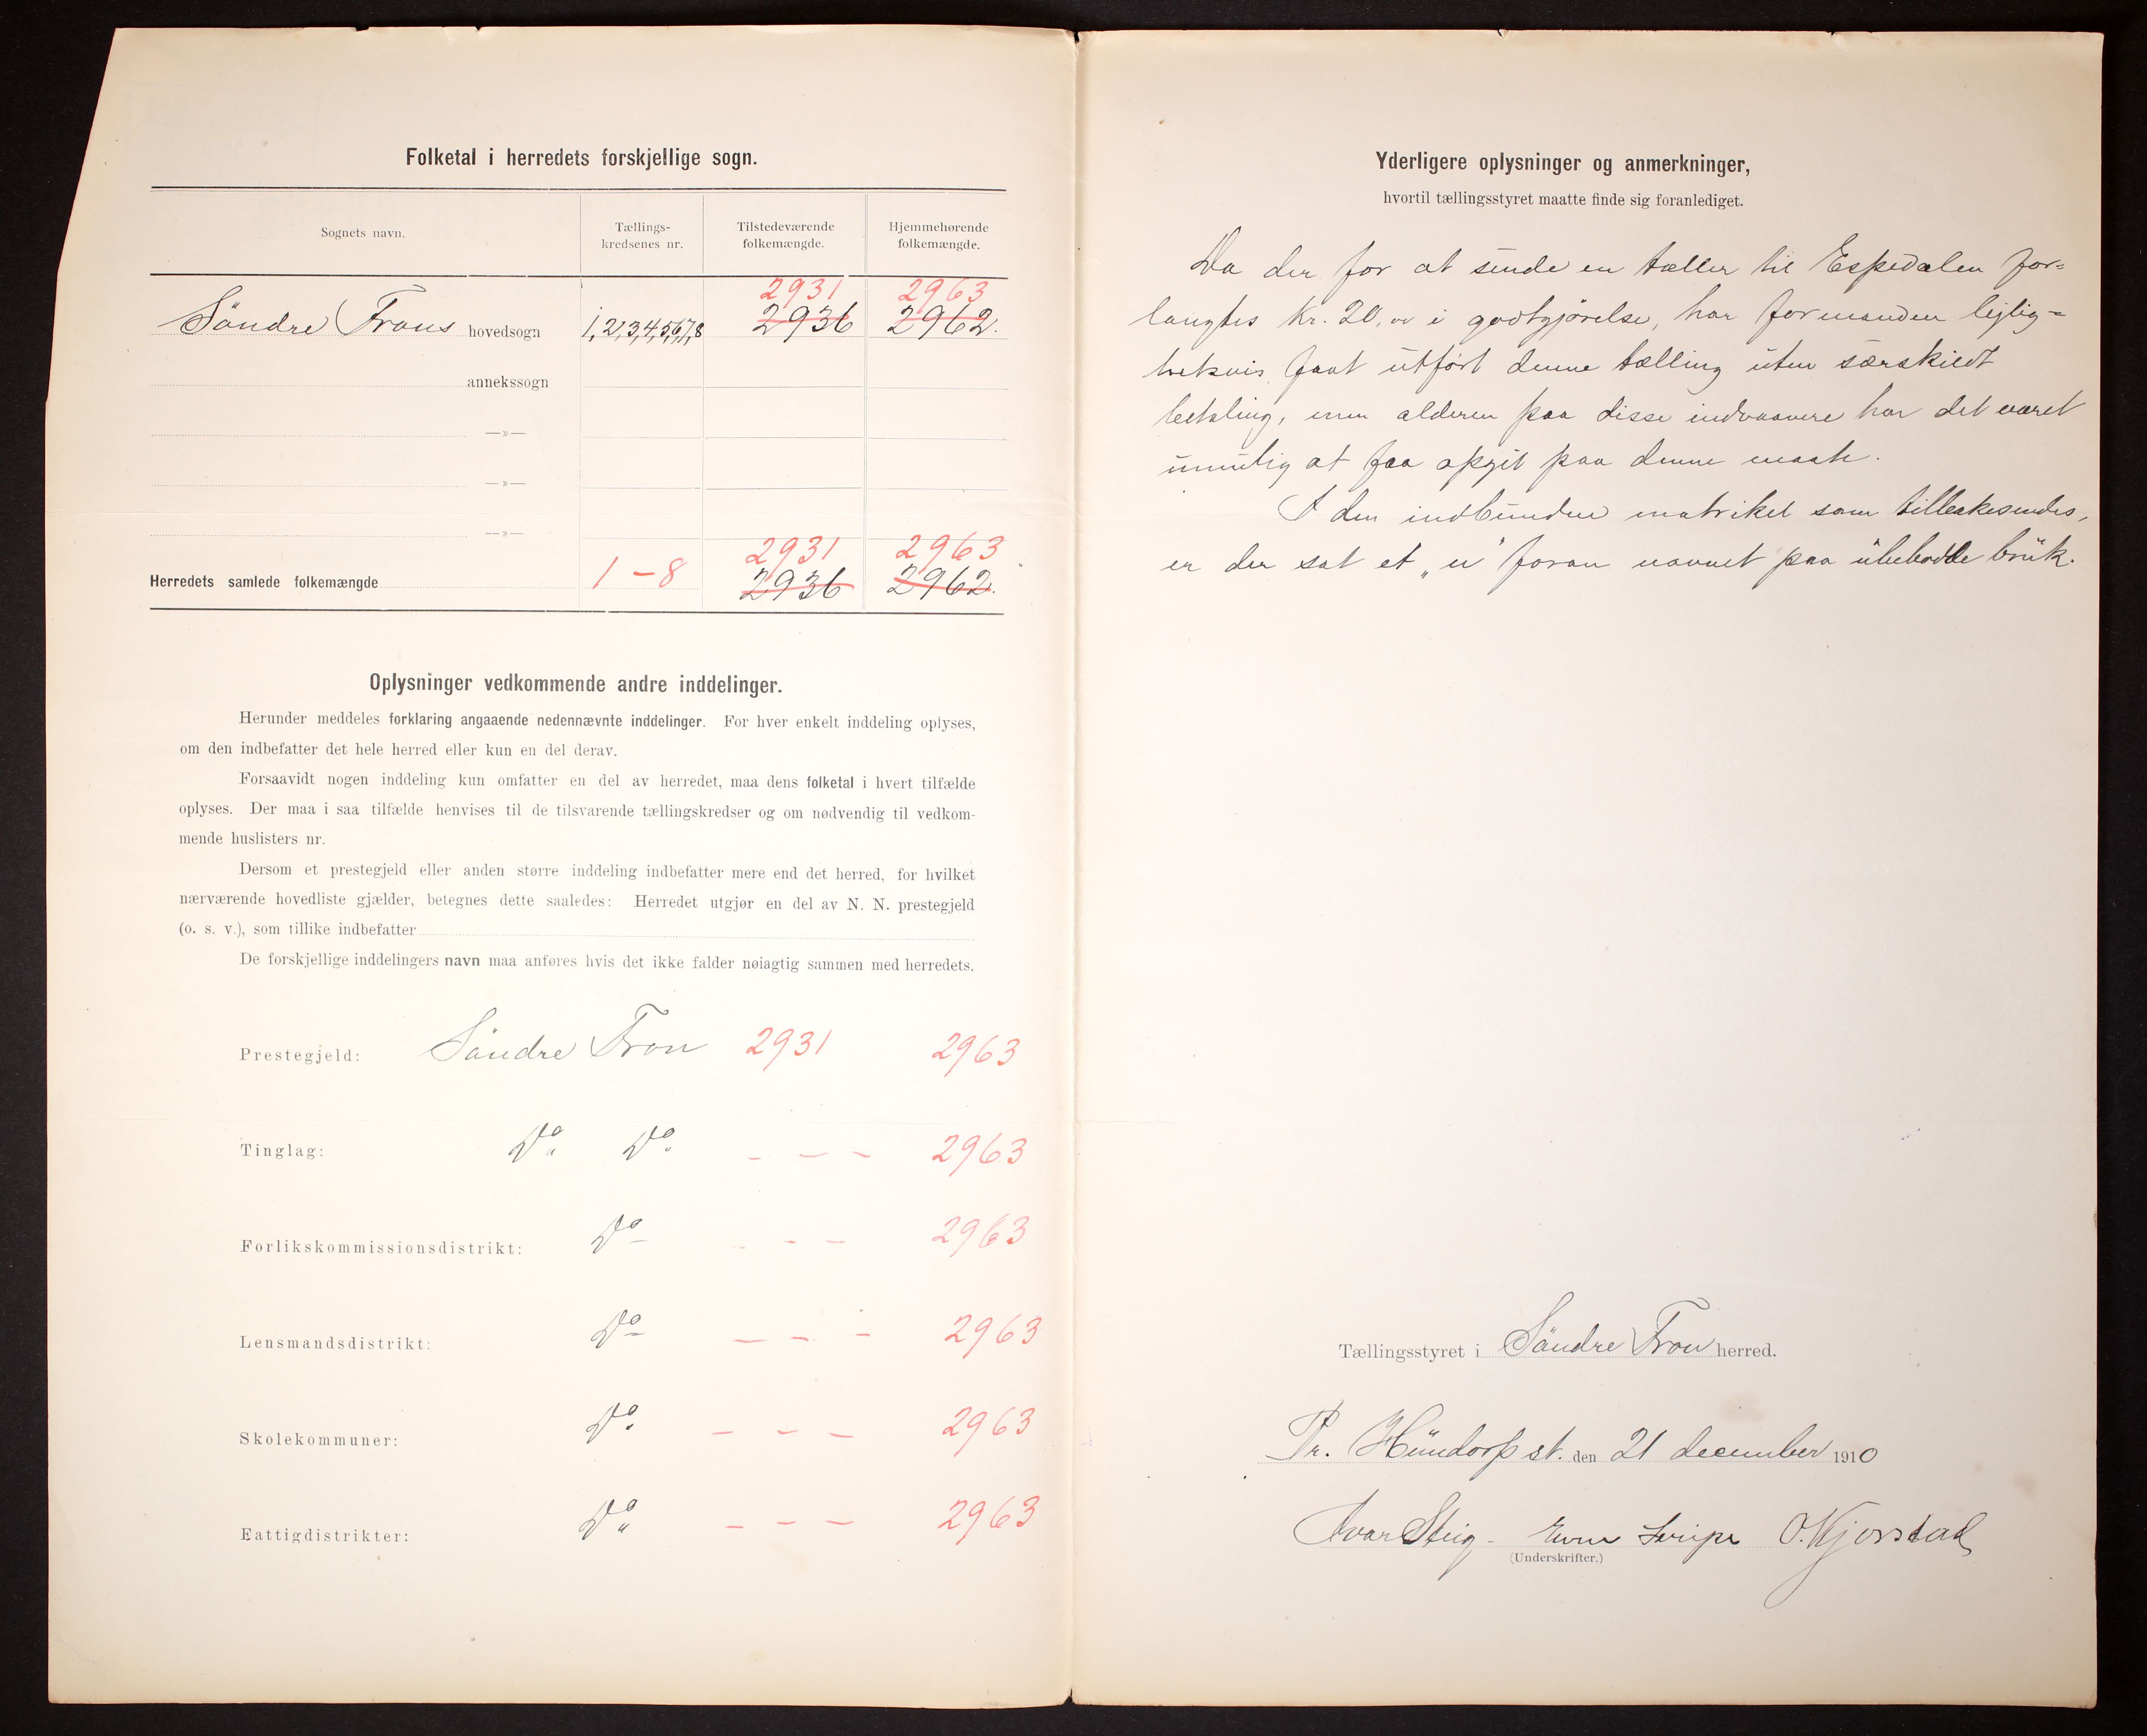 Folketal i herredets forskjellige sogn.
Sognets navn. Tællings-kredsenes nr. Tilstedeværende folkemængde. Hjemmehørende folkemængde.
2931 2963
Söndre Frons hovedsogn 1,2,3,4,5,6,7,8 2936 2962.
annekssogn
—»—
—»—
—»—
2931 2963
Herredets samlede folkemængde 1–8 2936 2962.
Oplysninger vedkommende andre inddelinger.
Herunder meddeles forklaring angaaende nedennævnte inddelinger. For hver enkelt inddeling oplyses,
om den indbefatter det hele herred eller kun en del derav.
Forsaavidt nogen inddeling kun omfatter en del av herredet, maa dens folketal i hvert tilfælde
oplyses. Der maa i saa tilfælde henvises til de tilsvarende tællingskredser og om nødvendig til vedkom-
mende huslisters nr.
Dersom et prestegjeld eller anden større inddeling indbefatter mere end det herred, for hvilket
nærværende hovedliste gjælder, betegnes dette saaledes: Herredet utgjør en del av N. N. prestegjeld
(o. s. v.), som tillike indbefatter
De forskjellige inddelingers navn maa anføres hvis det ikke falder nøiagtig sammen med herredets.
Prestegjeld: Söndre Fron 2931 2963
Tinglag: Do. Do. – – – 2963
Forlikskommissionsdistrikt: Do – – – 2963
Lensmandsdistrikt: Do – – – 2963
Skolekommuner: Do. – – – 2963
Fattigdistrikter: Do – – – 2963
Yderligere oplysninger og anmerkninger,
hvortil tællingsstyret maatte finde sig foranlediget.
Da der for at sende en tæller til Espedalen for=
langtes Kr. 20,00 i godtgjörelse, har formanden lejlig=
hetsvis faat utfört denne tælling uten særskildt
betaling, men alderen paa disse indvaanere har det været
umulig at faa opgit paa denne maate.
I den indbundne matrikel som tilbakesendes,
er der sat et „u" foran navnet paa ubebodde brük.
Tællingsstyret i Söndre Fron herred.
Pr. Hündorp st. den 21 december 1910
Ivar Steig O. Kjorstad
(Underskrifter.)